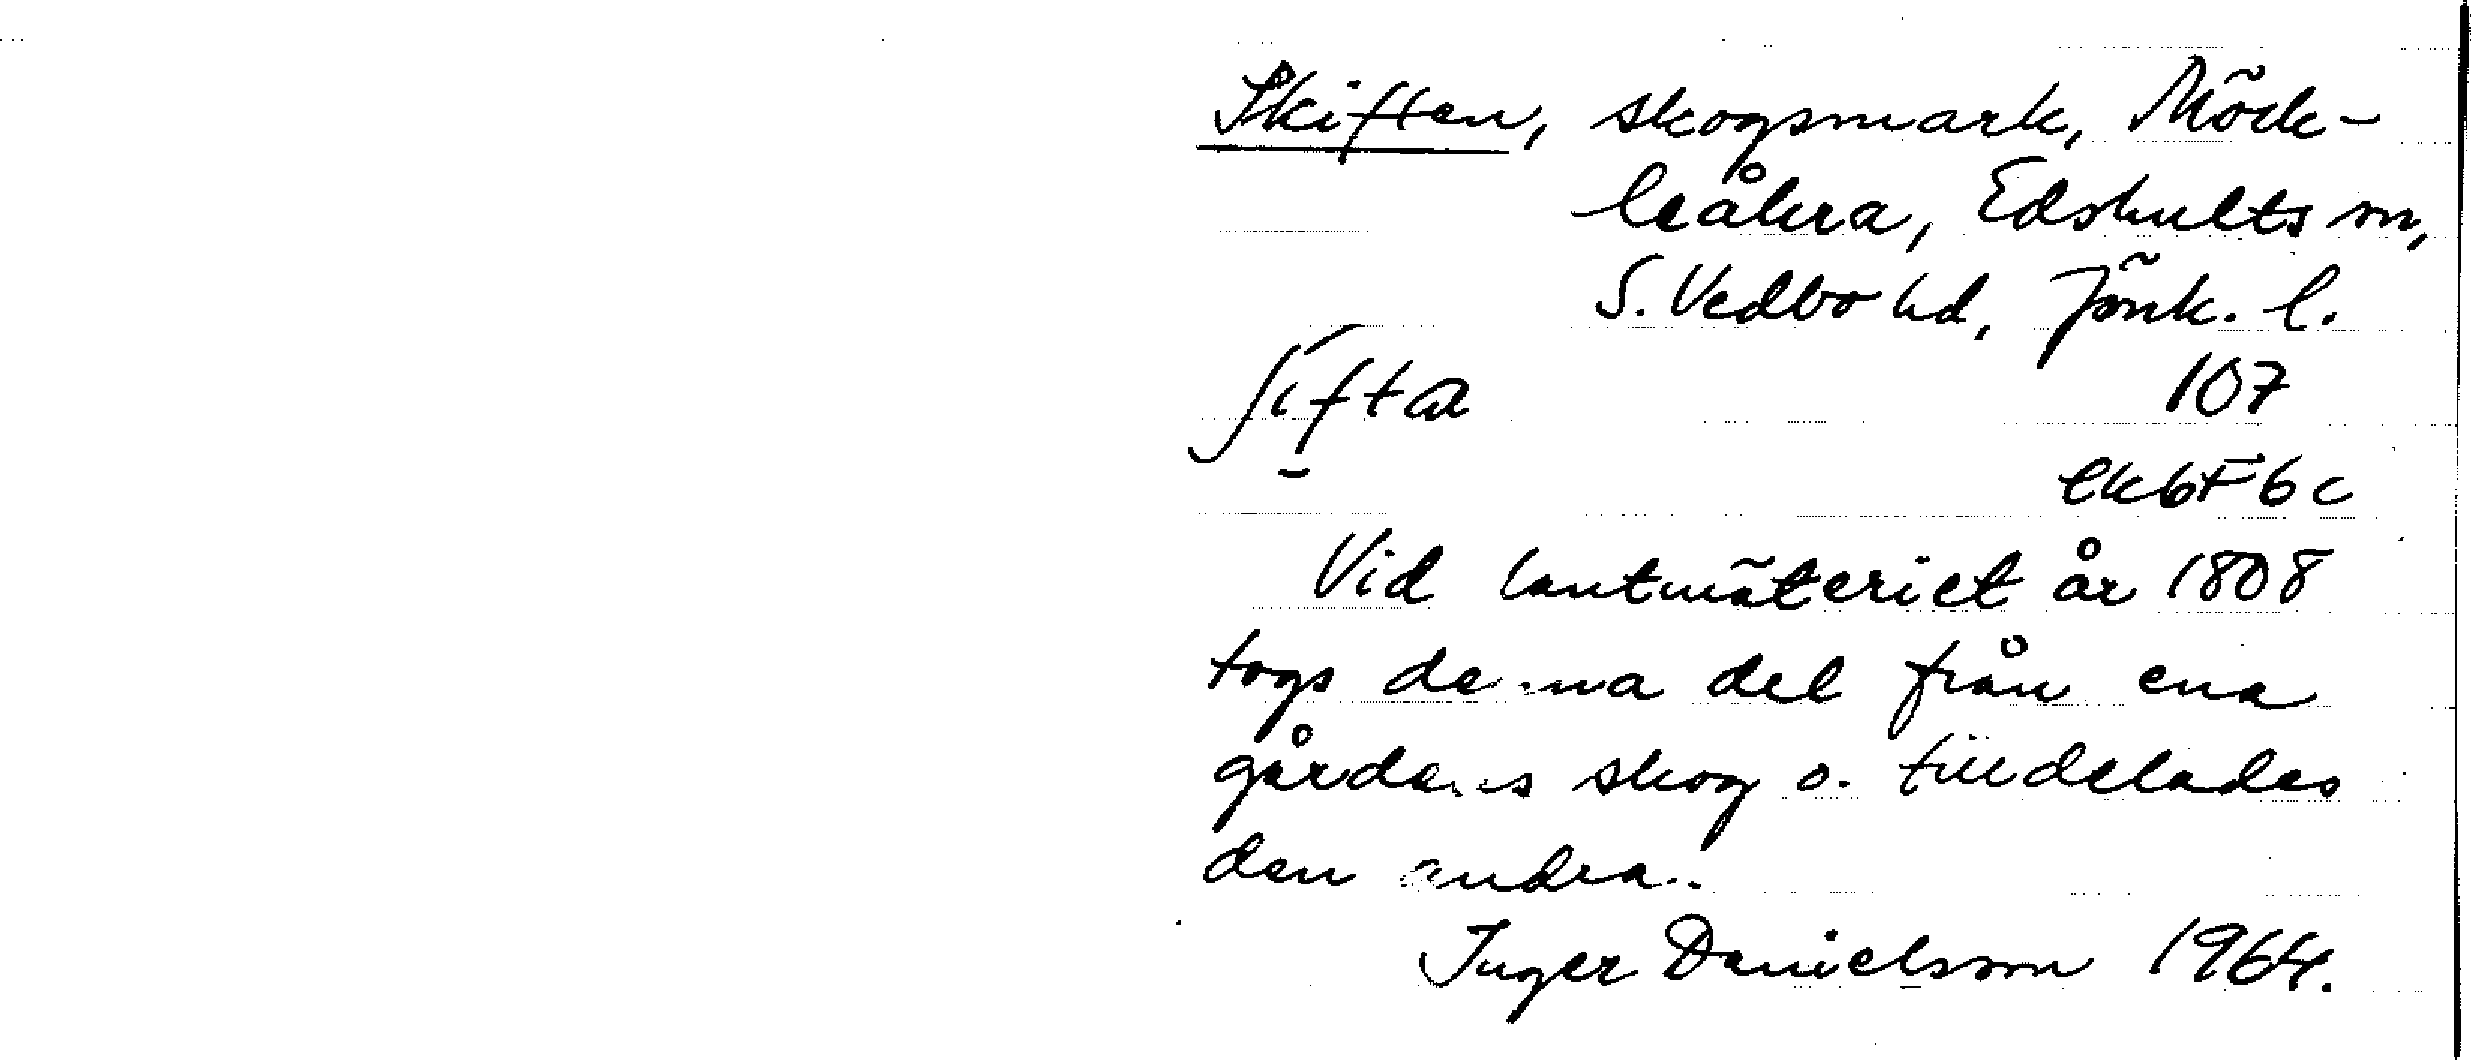 Skiften, skogsmark, Möck-
leåkra, Edshults sn,
S. Vedbo hd, Jönk. l.
ʃifta 107
ek6F6c
Vid lantmäteriet år 1808
togs denna del från ena
gårdens skog o. tilldelades
den andra.
Inger Danielsson 1964.